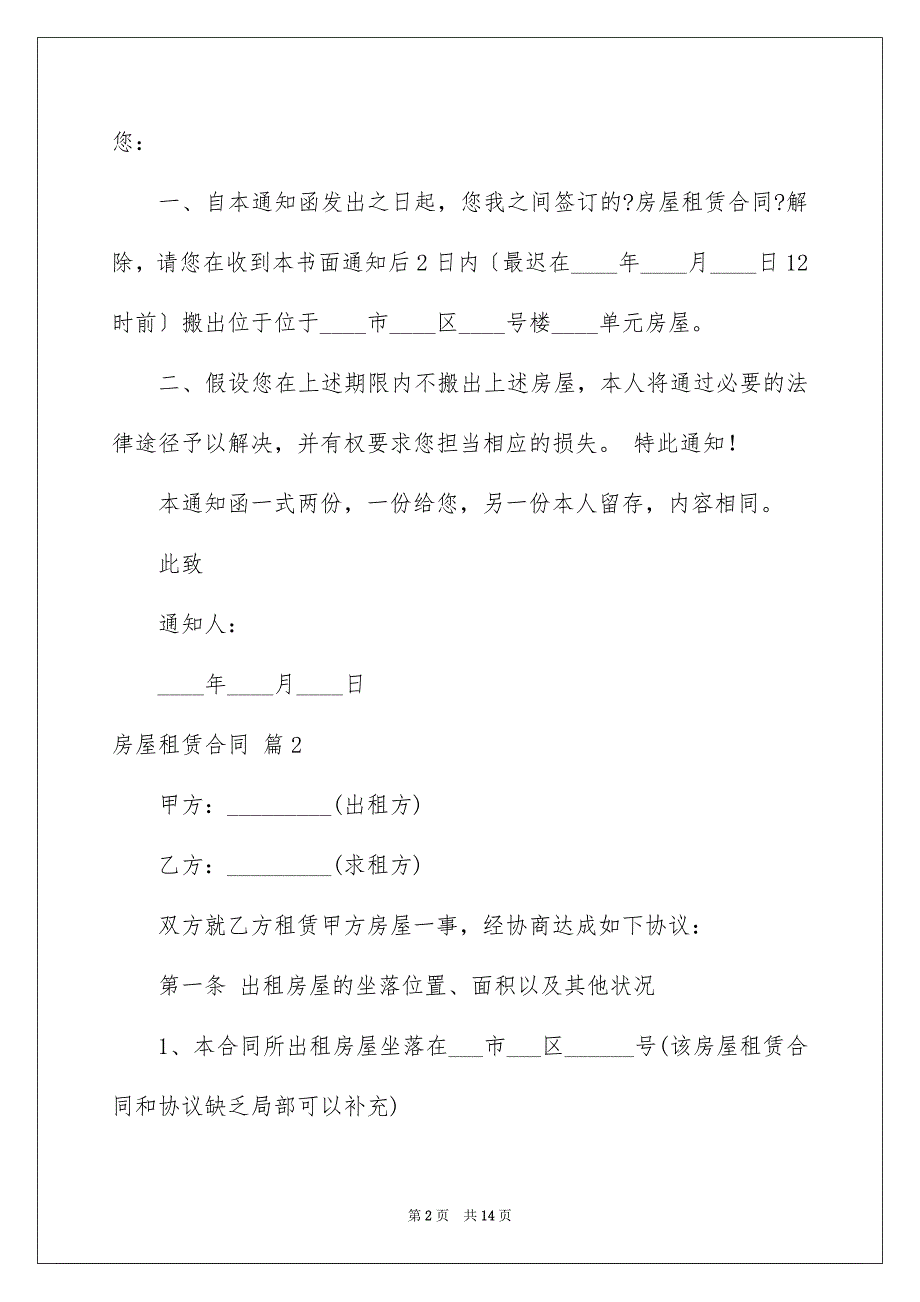 您:
一、自本通知函发出之日起，您我之间签订的?房屋租赁合同?解
除，请您在收到本书面通知后2日内〔最迟在____年____月____日12
时前〕搬出位于位于____市____区____号楼____单元房屋。
二、假设您在上述期限内不搬出上述房屋，本人将通过必要的法
律途径予以解决，并有权要求您担当相应的损失。 特此通知!
本通知函一式两份，一份给您，另一份本人留存，内容相同。
此致
通知人:
____年____月____日
房屋租赁合同 篇2
甲方: _________(出租方)
乙方: _________(求租方)
双方就乙方租赁甲方房屋一事，经协商达成如下协议:
第一条 出租房屋的坐落位置、面积以及其他状况
1、本合同所出租房屋坐落在___市___区______号(该房屋租赁合
同和协议缺乏局部可以补充)
第2页 共14页